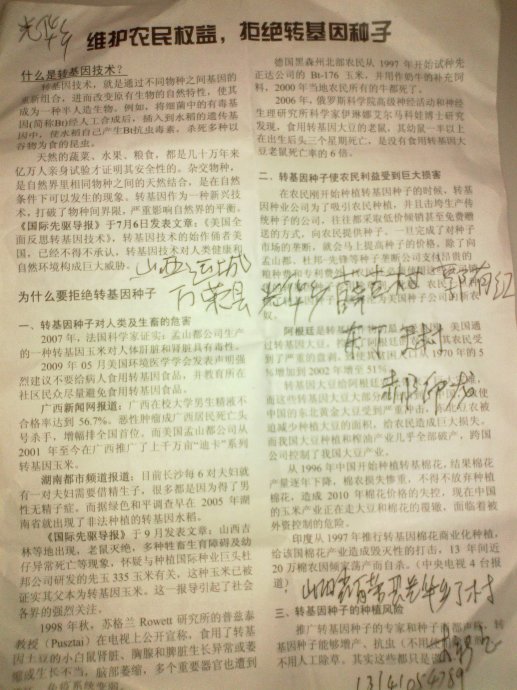 光华乡
维护农民权益，拒绝转基因种子
什么是转基因技术？
转基因技术，就是通过不同物种之间基因的
重新组合，进而改变原有生物的自然特性，使其
成为一种半人造生物。例如，将细菌中的有毒基
因(简称Bt)经人工合成后，插入到水稻的遗传基
因中，使水稻自己产生Bt抗虫毒素，杀死多种以
谷物为食的昆虫。
天然的蔬菜、水果、粮食，都是几十万年来
亿万人亲身试验才证明其安全性的。杂交物种，
是自然界里相同物种之间的天然结合，是在自然
条件下可以发生的现象。转基因作为一种新兴技
术，打破了物种间界限，严重影响自然界的平衡。
《国际先驱导报》于7月6日发表文章：《美国全
面反思转基因技术》，转基因技术的始作俑者美
国，已经不得不承认，转基因技术对人类健康和
自然环境构成巨大威胁。
山西运城
为什么要拒绝转基因种子
万荣县 光华乡
一、转基因种子对人类及生畜的危害
2007年，法国科学家证实：孟山都公司生产
的一种转基因玉米对人体肝脏和肾脏具有毒性。
2009年05月美国环境医学学会发表声明强
烈建议不要给病人食用转基因食品，并教育所在
社区民众尽量避免食用转基因食品。
广西新闻网报道：广西在校大学男生精液不
合格率达到56.7%。恶性肿瘤成广西居民死亡头
号杀手，增幅排全国首位。而美国孟山都公司从
2001年至今在广西推广了上千万亩“迪卡”系列
转基因玉米。
湖南都市频道报道：目前长沙每6对夫妇就
有一对夫妇需要借精生子，很多都是因为得了男
性无精子症。而据绿色和平调查早在2005年湖
南省就出现了非法种植的转基因水稻。
《国际先驱导报》于9月发表文章：山西吉
林等地出现，老鼠灭绝，多种牲畜生育障碍及幼
仔异常死亡等现象，怀疑与种植国际种业巨头杜
邦公司研发的先玉335玉米有关，这种玉米已被
证实其父本为转基因玉米。这一报导引起了社会
各界的强烈关注。
1998年秋，苏格兰Rowett研究所的普兹泰
教授（Pusztai）在电视上公开宣称，食用了转基
因土豆的小白鼠肾脏、胸腺和脾脏生长异常或萎
缩或生长不当，脑部萎缩，多个重要器官也遭到
德国黑森州北部农民从1997年开始试种先
正达公司的Bt-176玉米，并用作奶牛的补充饲
料，2000年当地农民所有的牛都死了。
2006年，俄罗斯科学院高级神经活动和神经
生理研究所科学家伊琳娜艾尔马科娃博士研究
发现，食用转基因大豆的老鼠，其幼鼠一半以上
在出生后头三个星期死亡，是没有食用转基因大
豆老鼠死亡率的6倍。
二、转基因种子使农民利益受到巨大损害
在农民刚开始种植转基因种子的时候，转基
因种业公司为了吸引农民种植，并且击垮生产传
统种子的公司，往往都采取低价倾销甚至免费赠
送的方式，向农民提供种子。一旦完成了对种子
市场的垄断，就会马上提高种子的价格。除了向
孟山都、杜邦-先锋等种子垄断公司支付昂贵的
阿根廷是转基因
通过转基因大豆，
到了严重的盘剥，
1970年的5
%增加到2002年增至51%。
转基因大豆给阿根廷
而这些转基因大豆大部分
中国的东北黄金大豆受到严重冲击，东北豆农被
迫减少种植大豆的面积，给农民造成巨大损失。
而我国大豆种植和榨油产业几乎全部破产，跨国
公司控制了我国大豆产业。
从1996年中国开始种植转基因棉花，结果棉花
产量逐年下降，棉农损失惨重，不得不放弃种植
棉花，造成2010年棉花价格的失控，现在中国
的玉米产业正在走大豆和棉花的覆辙，面临着被
外资控制的危险。
印度从1997年推行转基因棉花商业化种植，
给该国棉花产业造成毁灭性的打击，13年间近
20万棉农因倾家荡产而自杀。（中央电视4台报
道）
三、转基因种子的种植风险
推广转基因种子的专家和种子商都声称，转
基因种子能够增产、抗虫（不用
不用人工除草。其实这些都只是
13141054759